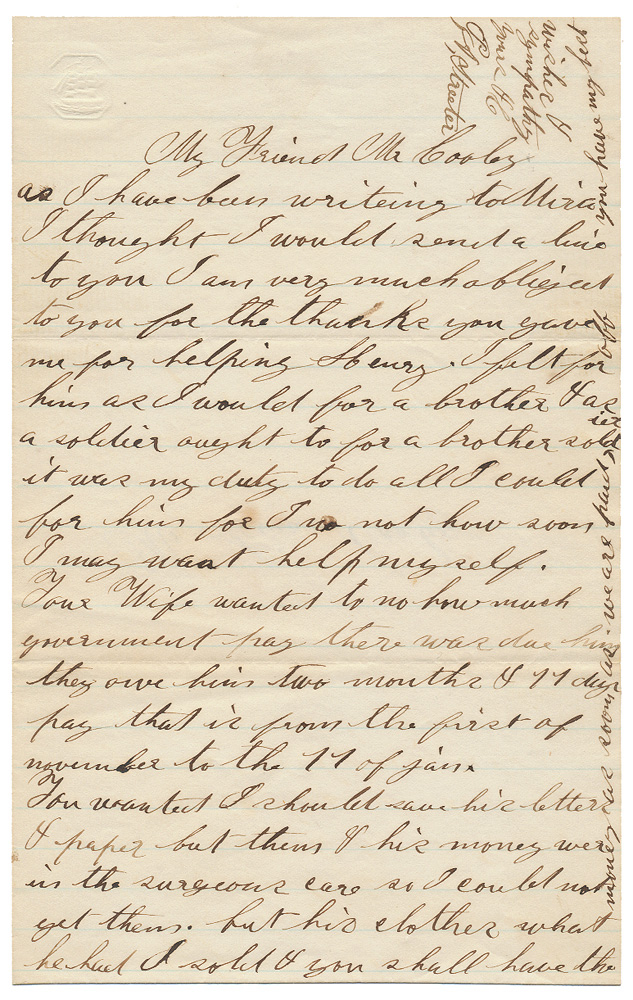 My Friend Mr Cooley
as I have been writeing to Mira
I thought I would send a line
to you I am very much oblieject
to you for the thanks you gave
me for helping Henry. I felt for
him as I would for a brother & as
a soldier ought to for a brother soldier
it was my duty to do all I could
for him for I no not how soon
I may want help myself.
Your Wife wanted to no how much
government pay there was due him
they owe him two months & 11 days
pay that is from the first of
november to the 11 of jan.
You wanted I should save his letters
& paper but them & his money were
in the surgeons care so I could not
get them. but his clothes what
he had I sold & you shall have the
money as soon as we are paid off
you have my best
wishes &
sympathy
yours &c
Streeter